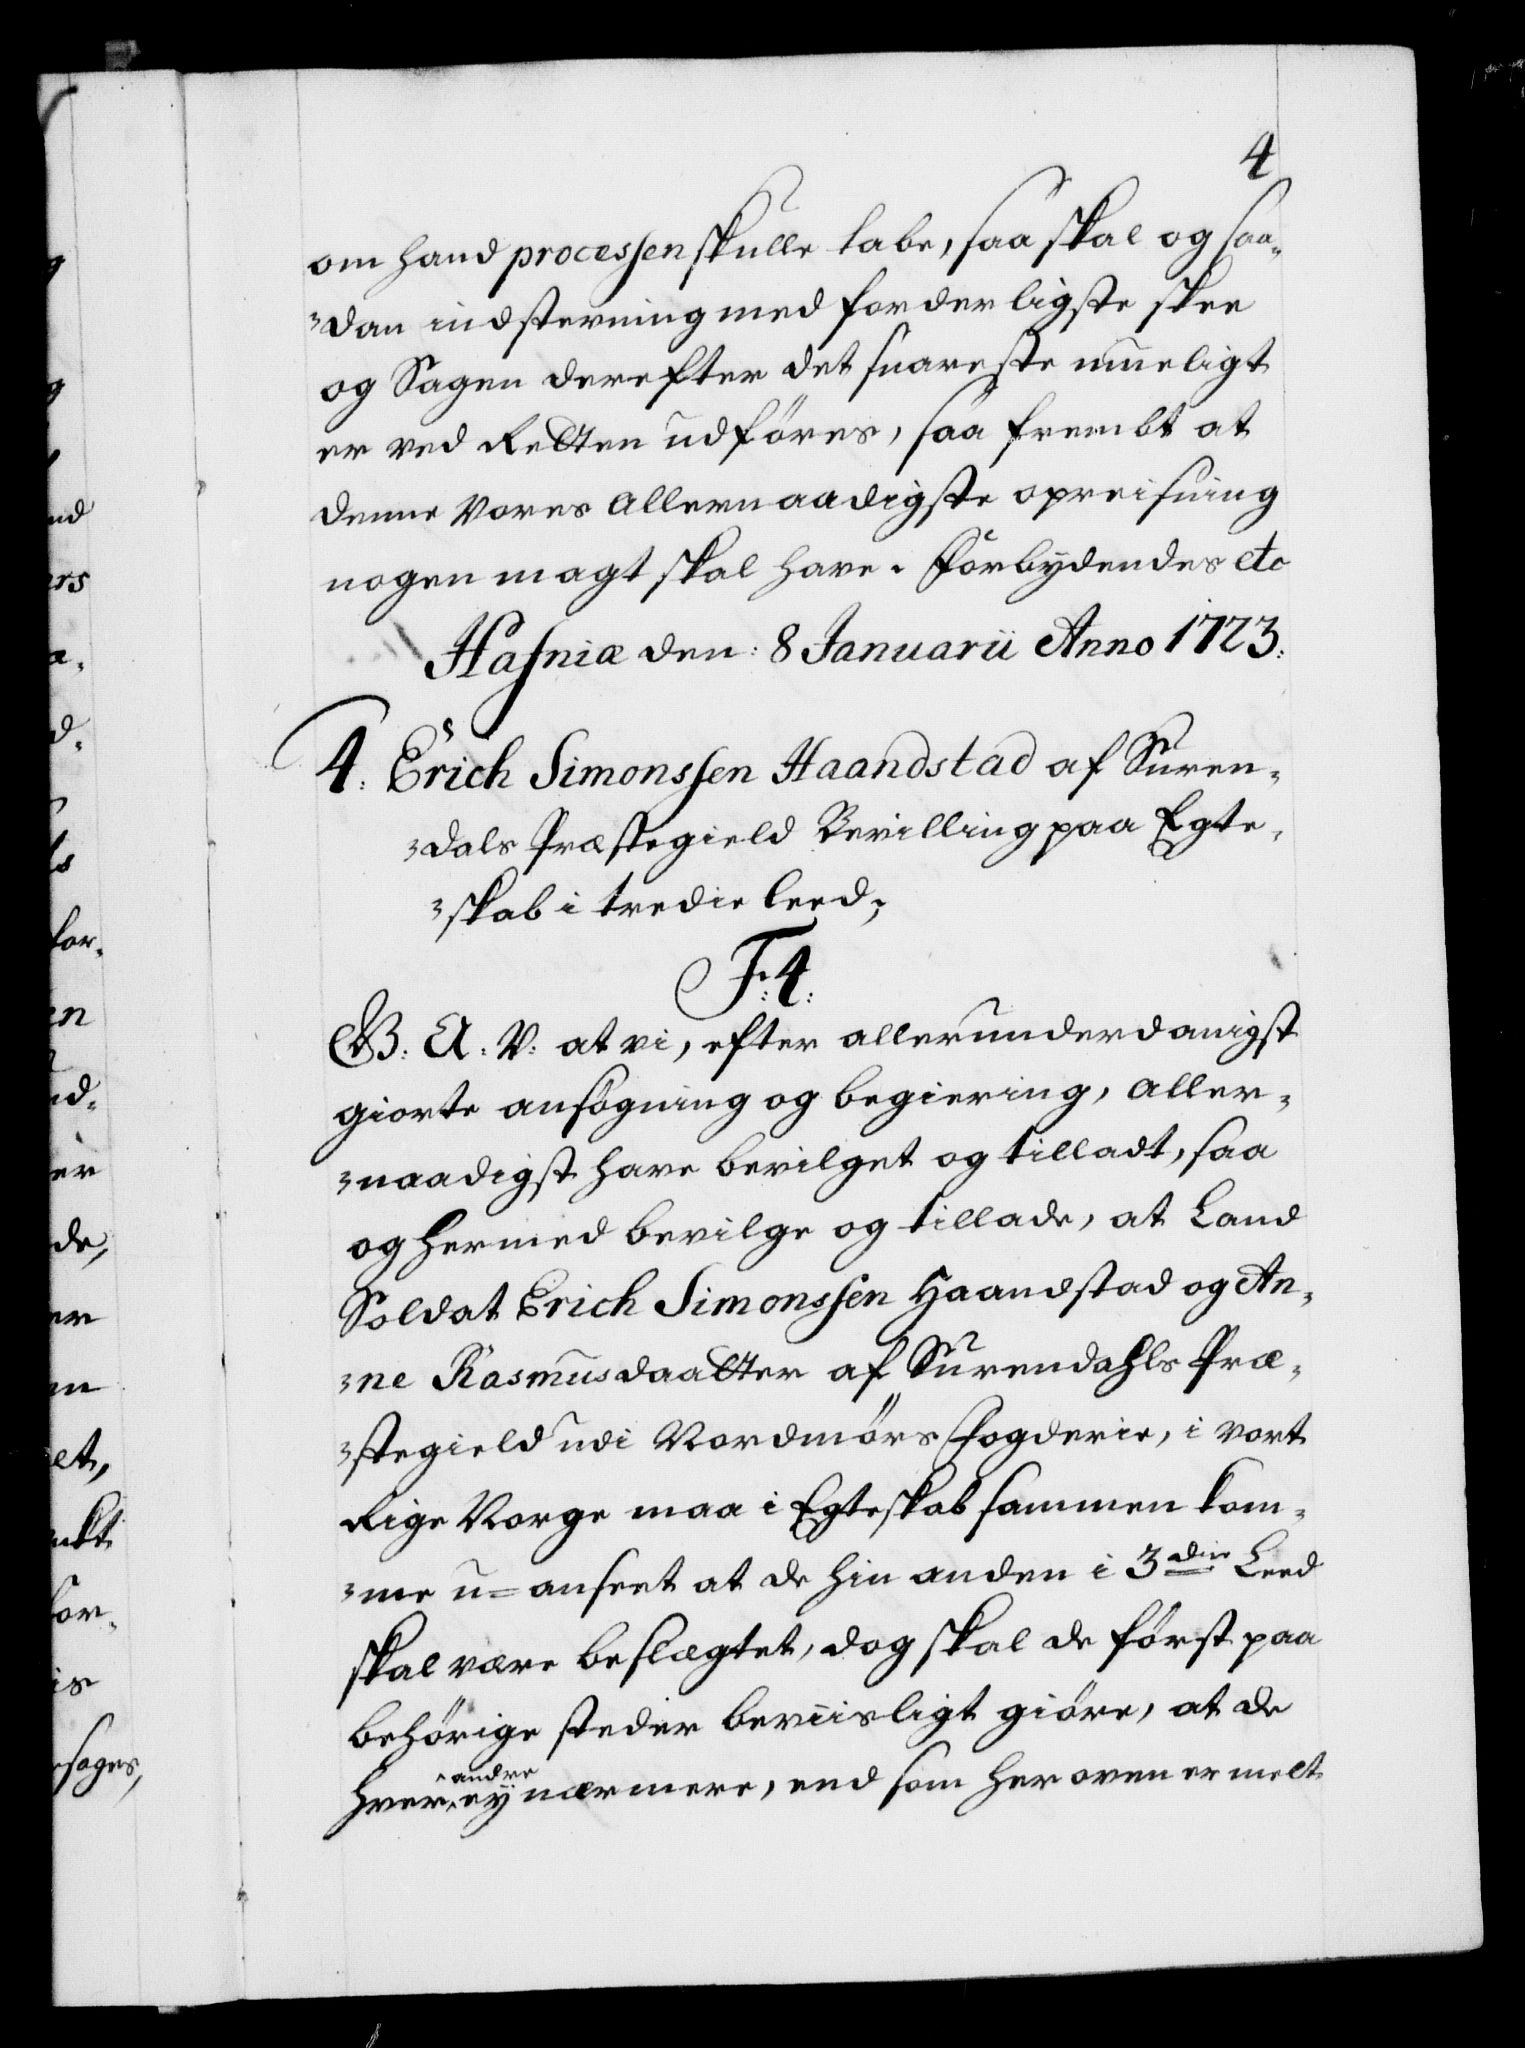 4
om hand processen skulle tabe, saa skal og saa-
dan indstevning med forderligste skee
og Sagen derefter det snareste mueligt
er ved Retten udføres, saa frembt at
denne Vores Allernaadigste opreisning
nogen magt skal have. Forbydendes etc
Hafniæ den: 8 Januarii Anno 1723.
4. Erich Simonssen Haandstad af Suren-
dals Præstegield Bevilling paa Egte-
skab i tredie leed;
F: 4:
G: A: V: at vi, efter allerunderdanigst
giorte ansøgning og begiering, aller-
naadigst have bevilget og tilladt, saa
og hermed bevilge og tillade, at Land
Soldat Erich Simonssen Haandstad og An-
ne Rasmusdaatter af Surendahls Præ-
stegield udi Nordmørs Fogderie, i vort
Rige Norge maa i Egteskab sammen kom-
me u=anseet at de hin anden i 3die Leed
skal være beslægtet, dog skal de først paa
behørige steder beviisligt giøre, at de
hver andre ey nærmere, end som her oven er melt
nd
ers
a-
d-
ts
for-
en
nd-
er
de,
er
en
et,
for-
is
sages,